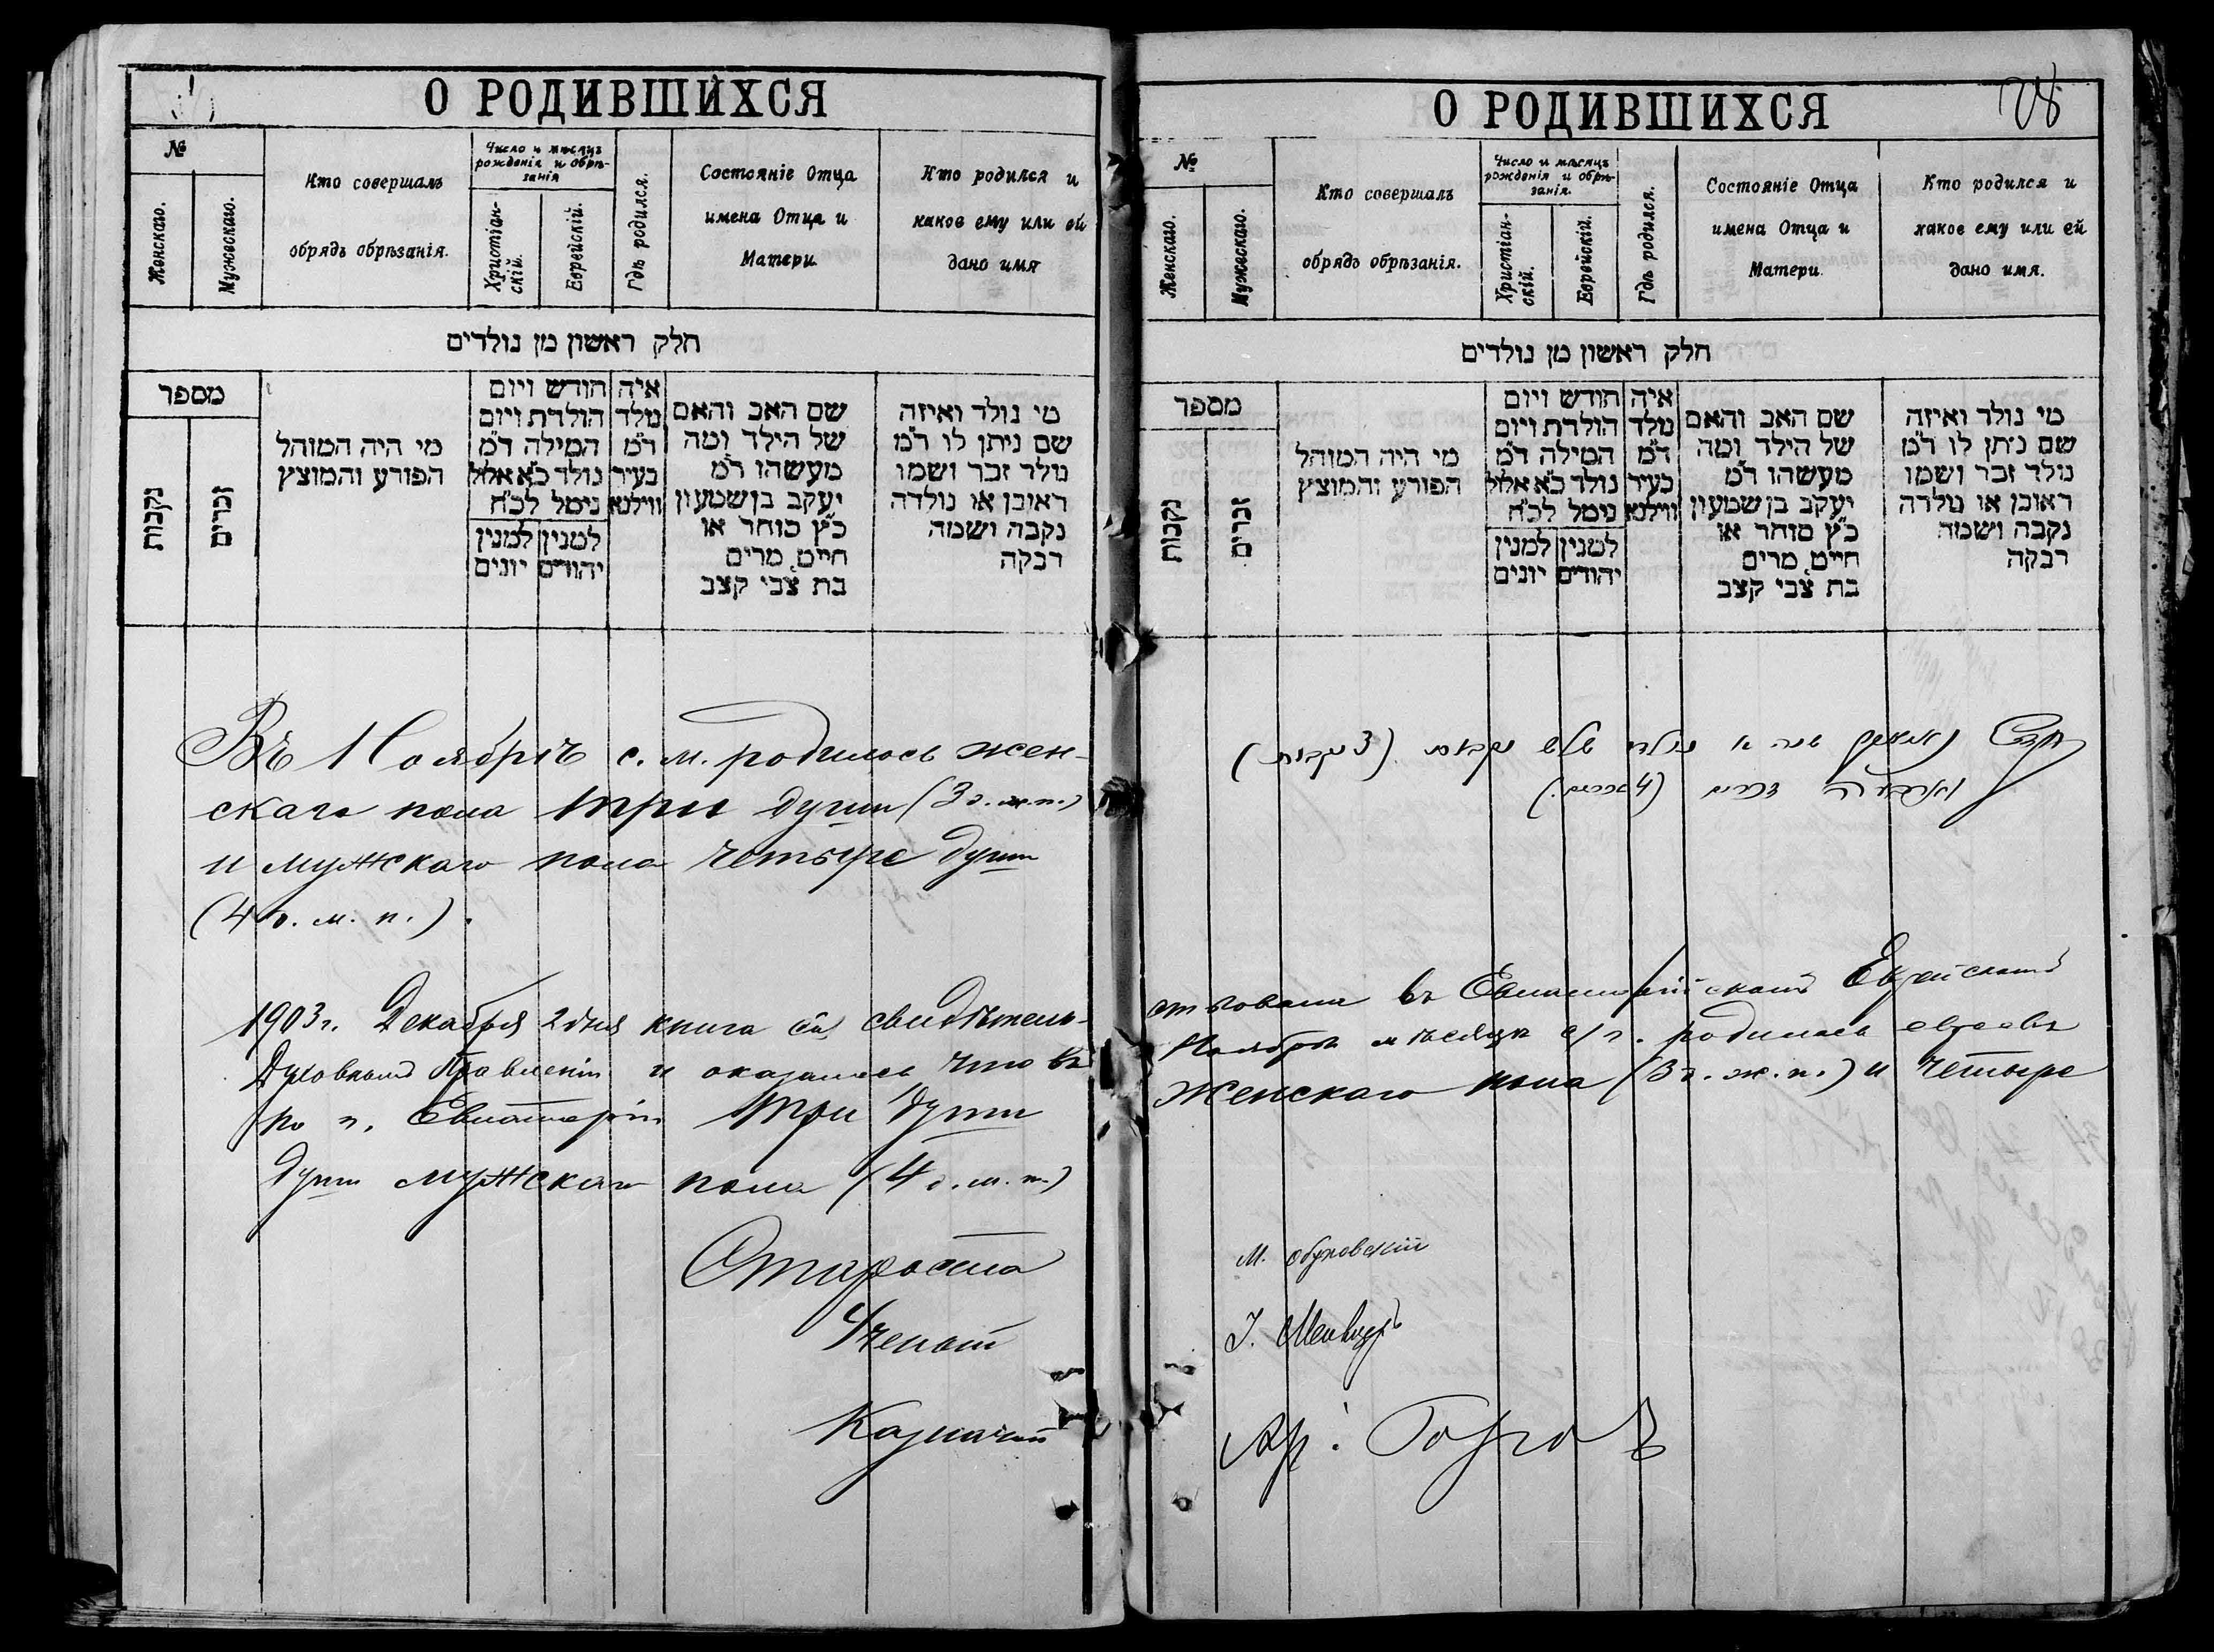 О РОДИВШИХСЯ
№
Женскаго.
Мужескаго.
Кто совершалъ
обрядъ обрѣзанія.
Число и мѣсяцъ
рожденія и обрѣ-
занія
Христіан-
скій.
Еврейскій.
Гдѣ родился.
Состояніе Отца
имена Отца и
Матери
Кто родился и
какое ему или ей
дано имя
חלק ראשון מן נולדים
מספר
נקבות
זכרים
מי היה המוהל
הפורע והמוצץ
חודש ויום
הולדת ויום
המילה ד״מ
נולד כ״א אלול
נימל לכ״ח
למנין למנין
יהודים יונים
איה
נולד
ד״מ
בעיר
ווילנא
שם האב והאם
של הילד ומה
מעשהו ד״מ
יעקב בן שמעון
כ״ץ סוחר או
חייט, מרים
בת צבי קצב
מי נולד ואיזה
שם ניתן לו ד״מ
נולד זכר ושמו
ראובן או נולדה
נקבה ושמה
רבקה
Въ Ноябрѣ с. м. родилось жен-
скаго пола три души (3 д. ж. п.)
и мужскаго пола четыре души
(4 д. м. п.).
1903 г. Декабря 2 дня книга сія свидѣтель-
Духовномъ Правленіи и оказалось что въ
по г. Евпаторіи три души
душ мужскаго пола (4 д. м. п.)
Староста
Ученый
Казначей
О РОДИВШИХСЯ
№
Женскаго.
Мужескаго.
Кто совершалъ
обрядъ обрѣзанія.
Число и мѣсяцъ
рожденія и обрѣ-
занія.
Христіан-
скій.
Еврейскій.
Гдѣ родился.
Состояніе Отца
имена Отца и
Матери
Кто родился и
какое ему или ей
дано имя.
חלק ראשון מן נולדים
מספר
נקבות
זכרים
מי היה המוהל
הפורע והמוצץ
חודש ויום
הולדת ויום
המילה ד״מ
נולד כ״א אלול
נימל לכ״ח
למנין למנין
יהודים יונים
איה
נולד
ד״מ
בעיר
ווילנא
שם האב והאם
של הילד ומה
מעשהו ד״מ
יעקב בן שמעון
כ״ץ סוחר או
חייט, מרים
בת צבי קצב
מי נולד ואיזה
שם ניתן לו ד״מ
נולד זכר ושמו
ראובן או נולדה
נקבה ושמה
רבקה
שלש נקבות (3 נקבות)
זכרים (4 זכרים)
ствована въ Евпаторійскомъ Еврейскомъ
Ноябрѣ мѣсяцѣ с/г. родилось евреевъ
женскаго пола (3 д. ж. п.) и четыре
М. Обуховскій